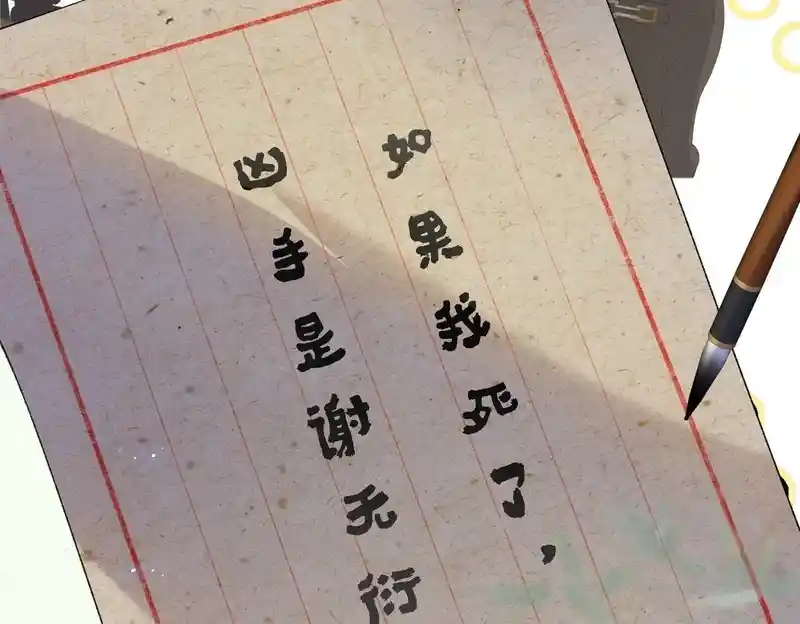 如果我死了，
凶手是谢无衍